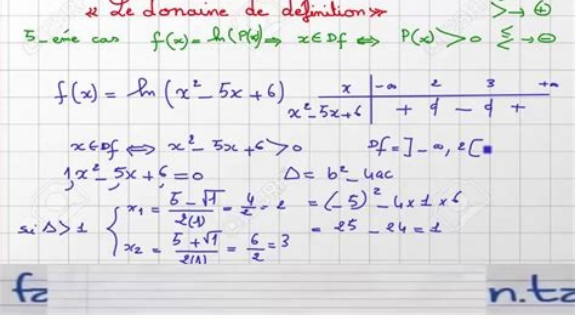 « Le domaine de définition »
> → ⊕
5-ème cas f(x) = ln(P(x)) ⇒ x ∈ Df ⇔ P(x) > 0 ≤ → ⊖
f(x) = ln(x² - 5x + 6)
x -∞ 2 3 +∞
x² - 5x + 6 + 0 - 0 +
x ∈ Df ⇔ x² - 5x + 6 > 0 Df = ]-∞, 2[
1x² - 5x + 6 = 0 Δ = b² - 4ac
x₁ = (5 - √1)/(2(1)) = 4/2 = 2 = (-5)² - 4 x 1 x 6
si Δ > 1 = 25 - 24 = 1
x₂ = (5 + √1)/(2(1)) = 6/2 = 3
fa
n.ta